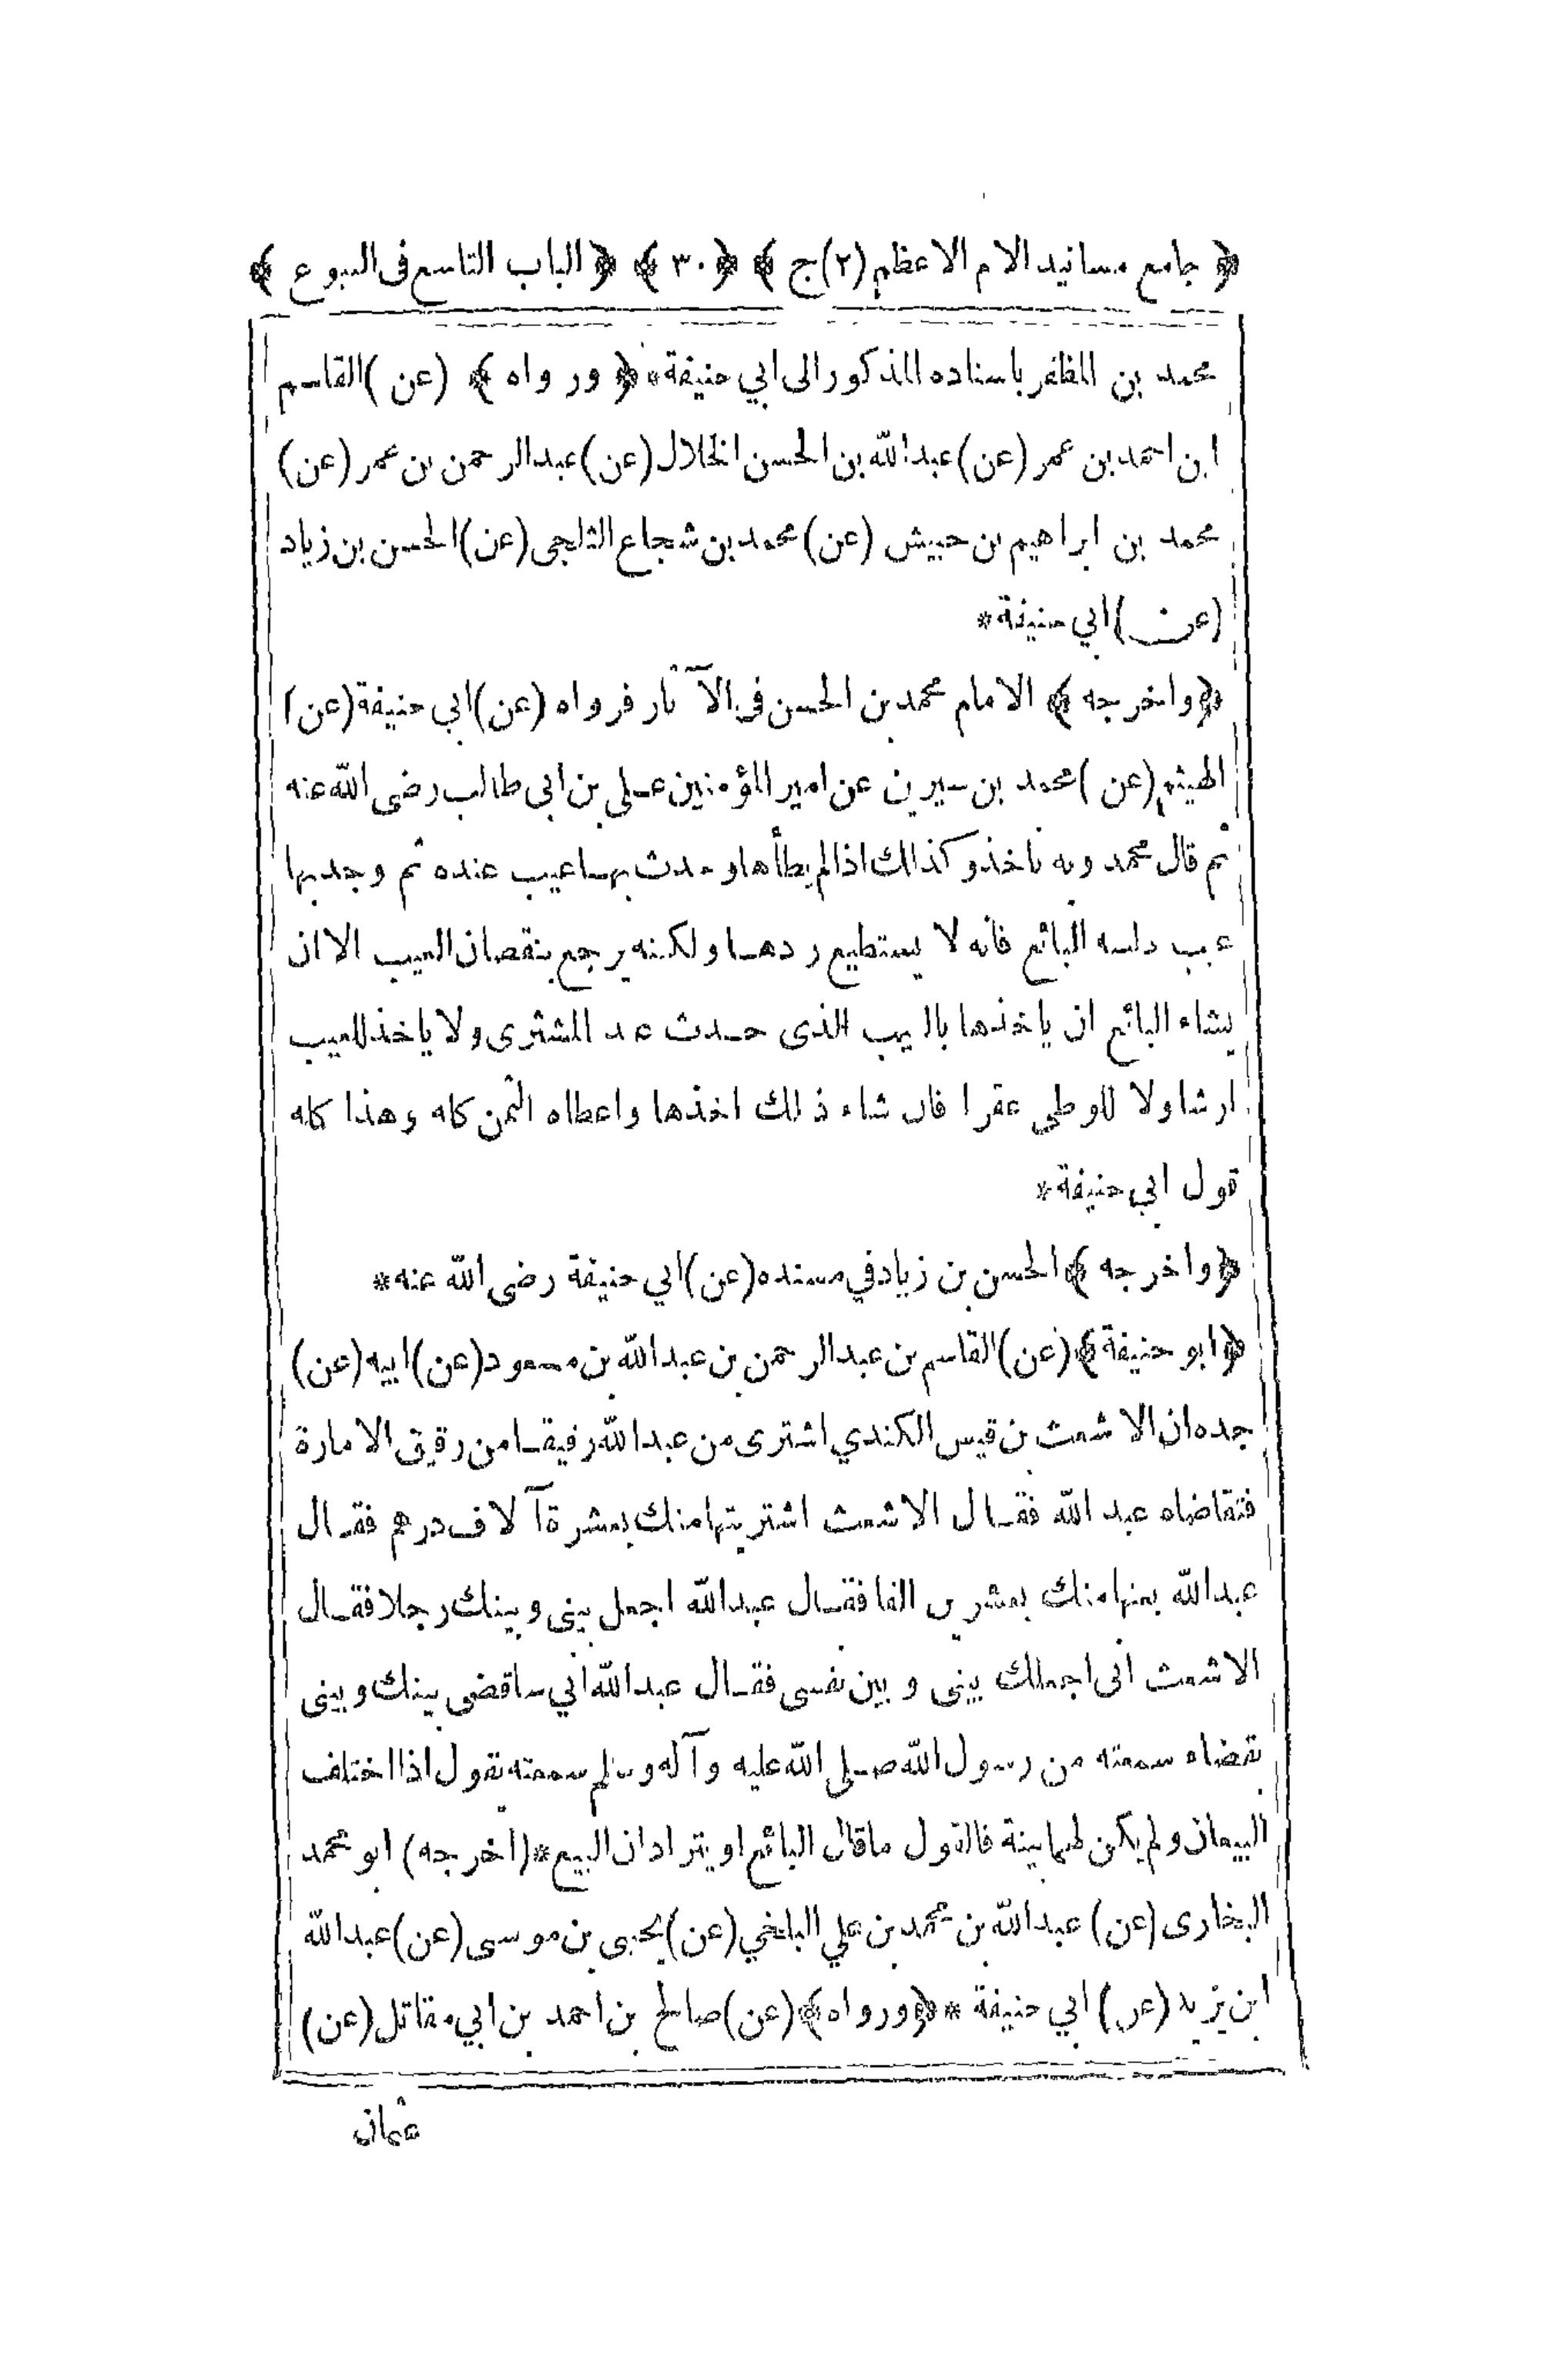 ﴿ جامع مسانيد الامام الاعظم (٢) ج ﴾ ﴿ ٣٠ ﴾ ﴿ الباب التاسع فى البيوع ﴾
محمد بن المظفر باسناده المذكور الى ابي حنيفة * ﴿ ورواه ﴾ (عن) القاسم
ابن احمد بن عمر (عن) عبدالله بن الحسن الخلال (عن) عبدالرحمن بن عمر (عن)
محمد بن ابراهيم بن حبيش (عن) محمد بن شجاع الثلجى (عن) الحسن بن زياد
(عن) ابي حنيفة *
﴿ واخرجه ﴾ الامام محمد بن الحسن فى الآثار فرواه (عن) ابي حنيفة (عن)
الهيثم (عن) محمد بن سيرين عن امير المؤمنين على بن ابى طالب رضى الله عنه
ثم قال محمد وبه ناخذ وكذالك اذا لم يطأها وحدث بها عيب عنده ثم وجد بها
عيب دلسه البائع فانه لا يستطيع ردها ولكنه يرجع بنقصان العيب الا ان
يشاء البائع ان ياخذها بالعيب الذى حدث عند المشترى ولا ياخذ للعيب
ارشا ولا للوطى عقرا فان شاء ذلك اخذها واعطاه الثمن كله وهذا كله
قول ابي حنيفة *
﴿ واخرجه ﴾ الحسن بن زياد في مسنده (عن) ابي حنيفة رضى الله عنه *
﴿ ابو حنيفة ﴾ (عن) القاسم بن عبدالرحمن بن عبدالله بن مسعود (عن) ابيه (عن)
جده ان الاشعث بن قيس الكندي اشترى من عبدالله رفيقا من رقيق الامارة
فتقاضاه عبد الله فقال الاشعث اشتريتها منك بعشرة آلاف درهم فقال
عبدالله بعتها منك بعشرين الفا فقال عبدالله اجعل بينى وبينك رجلا فقال
الاشعث انى اجعلك بينى و بين نفسى فقال عبدالله انى ساقضى بينك وبينى
بقضاء سمعته من رسول الله صلى الله عليه وآله وسلم سمعته يقول اذا اختلف
البيعان ولم يكن لهما بينة فالقول ماقال البائع او يترادان البيع * (اخرجه) ابو محمد
البخارى (عن) عبدالله بن محمد بن علي البلخي (عن) يحيى بن موسى (عن) عبدالله
ابن يزيد (عن) ابي حنيفة * ﴿ ورواه ﴾ (عن) صالح بن احمد بن ابي مقاتل (عن)
عثمان